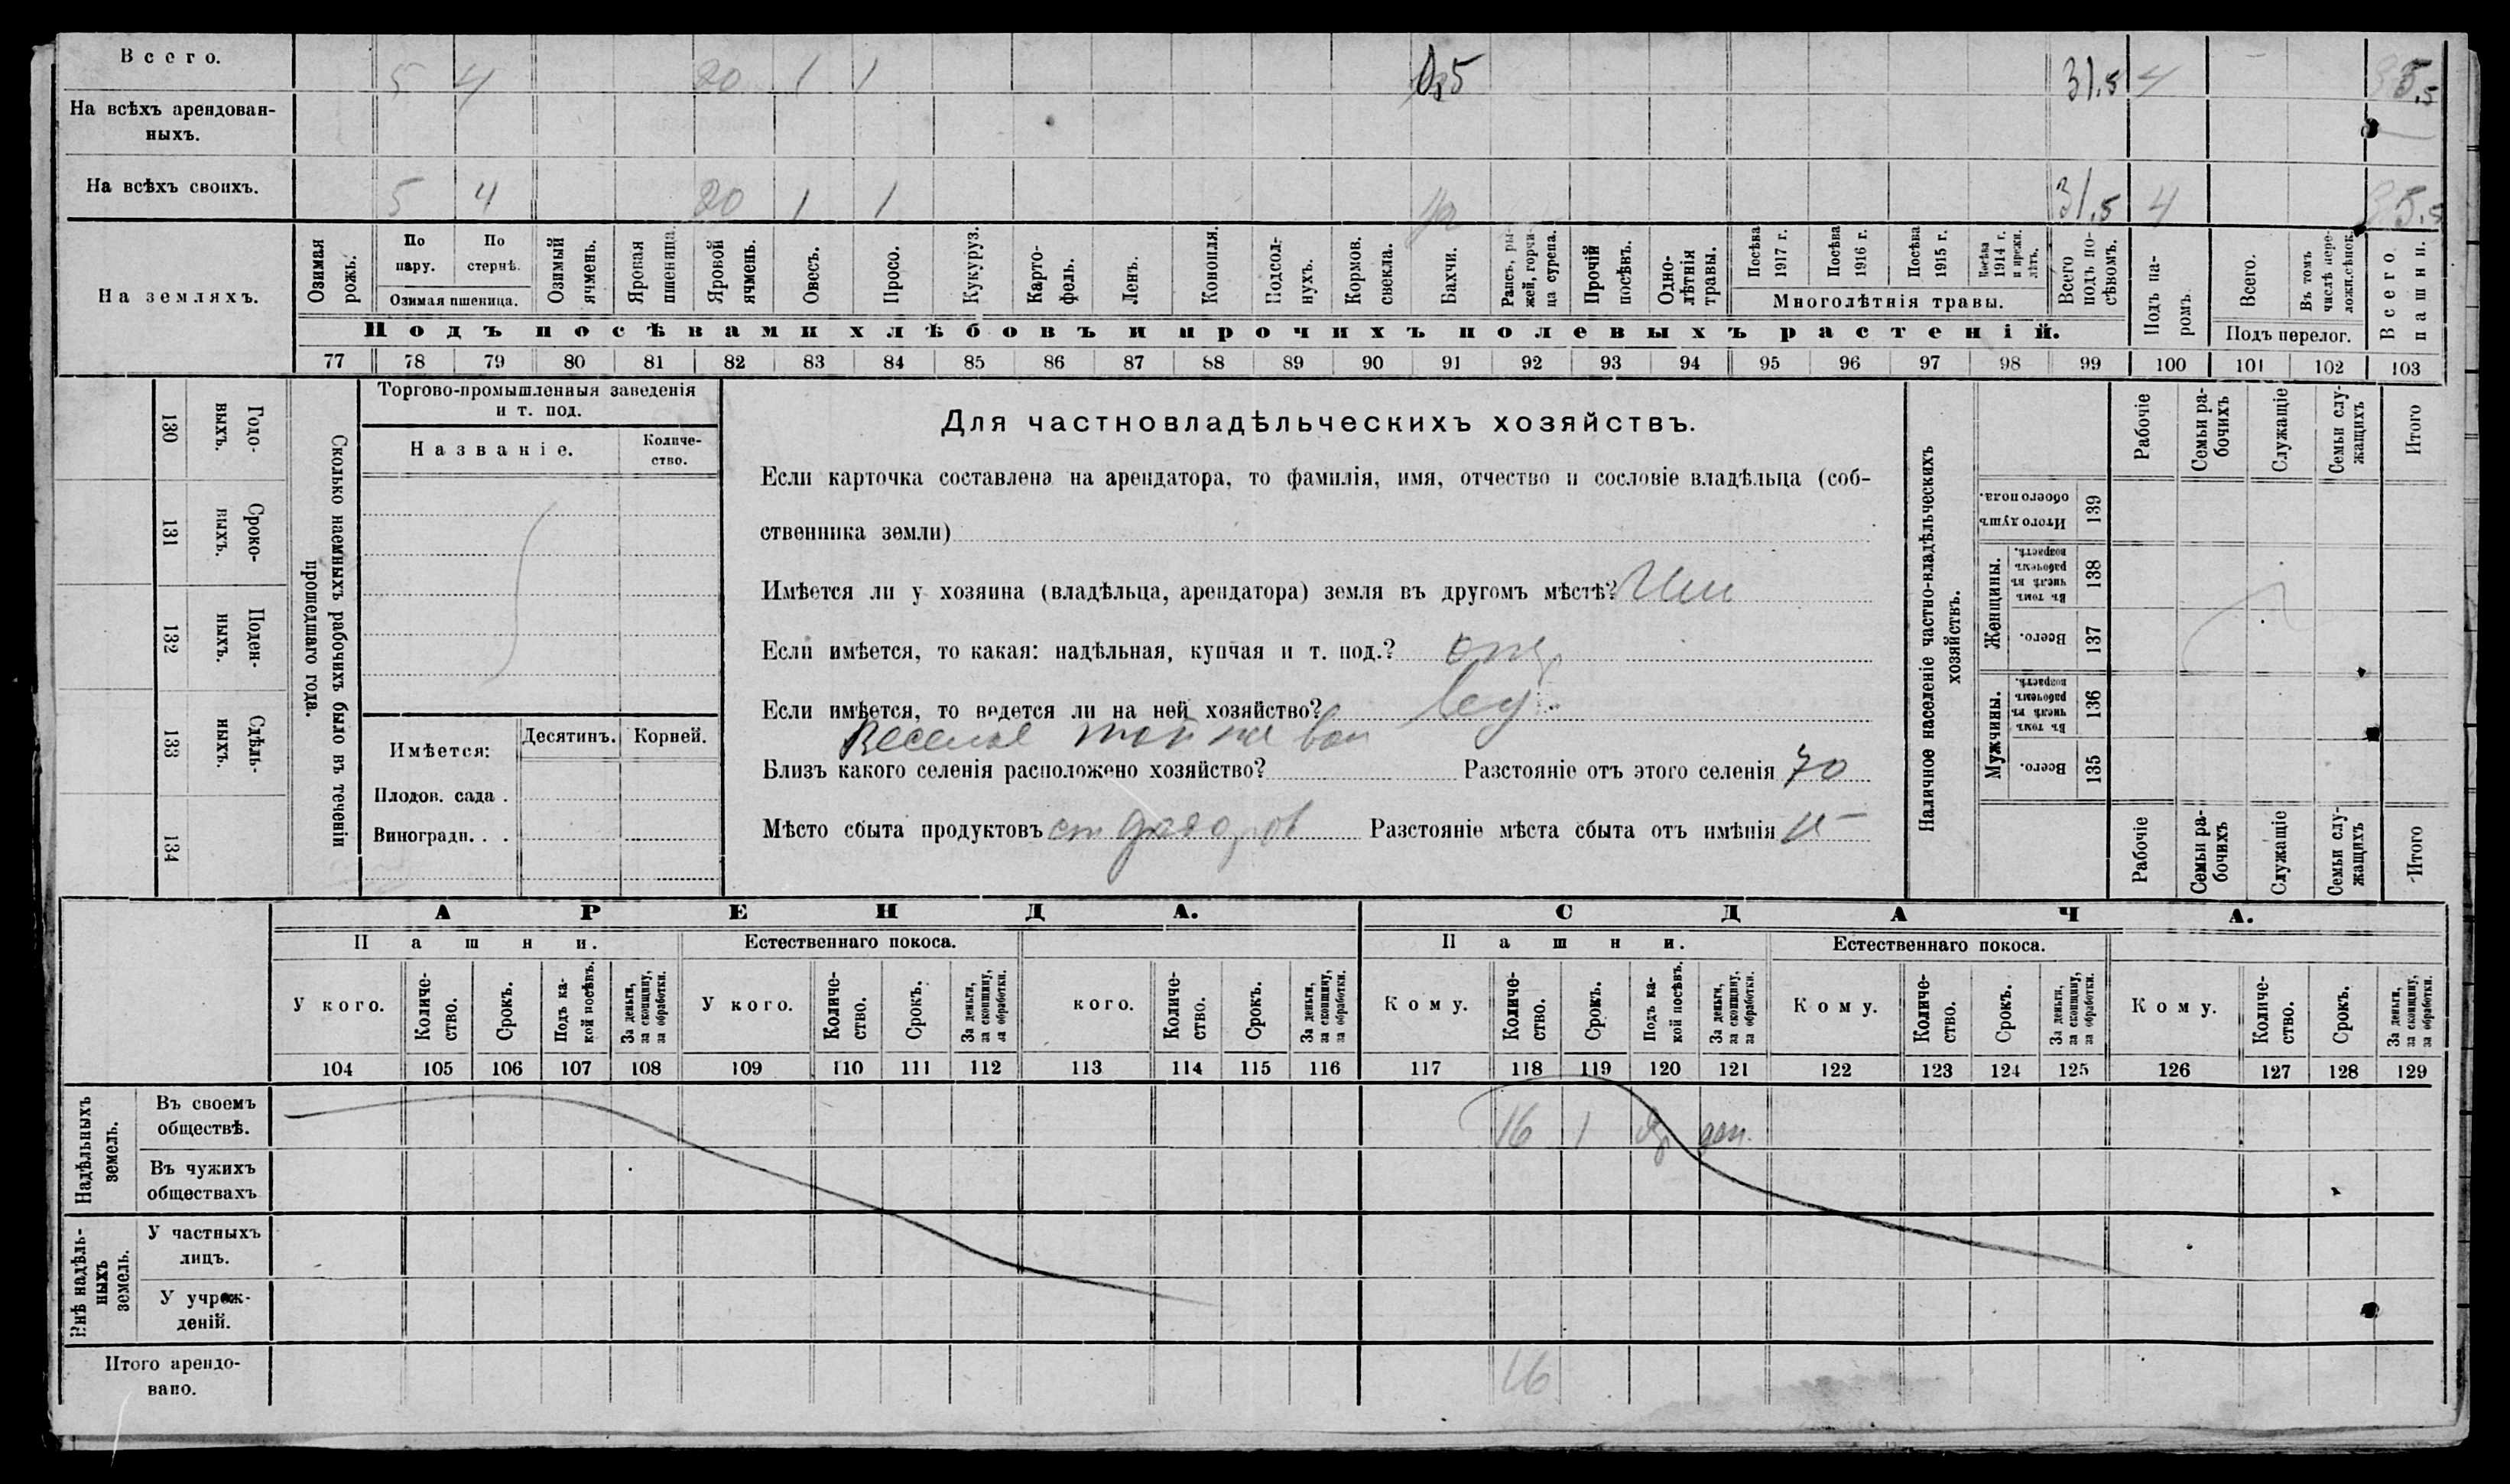 Всего. 5 4 20 1 1 0,5 31.5 4 35.5
На всѣхъ арендован-
ныхъ.
На всѣхъ своихъ. 5 4 20 1 1 1/2 31.5 4 35.5
На земляхъ.
Озимая рожь.
По пару.
По стернѣ.
Озимая пшеница.
Озимый ячмень.
Яровая пшеница.
Яровой ячмень.
Овесъ.
Просо.
Кукуруз.
Карто-
фель.
Ленъ.
Конопля.
Подсол-
нухъ.
Кормов. свекла.
Бахчи.
Рапсъ, ры-
жей, горчи-
ца сурепа.
Прочій посѣвъ.
Одно-
лѣтнія травы.
Посѣва 1917 г.
Посѣва 1916 г.
Посѣва 1915 г.
Посѣва 1914 г. и прежн. лѣтъ.
Многолѣтнія травы.
Всего подъ по-
сѣвомъ.
Подъ посѣвами хлѣбовъ и прочихъ полевыхъ растеній.
Подъ па-
ромъ.
Всего.
Въ томъ числѣ пере-
ложн.сѣнок.
Подъ перелог.
Всего пашни.
77 78 79 80 81 82 83 84 85 86 87 88 89 90 91 92 93 94 95 96 97 98 99 100 101 102 103
Годо-
выхъ.
130
Сроко-
ныхъ.
131
Поден-
ныхъ.
132
Сдѣль-
ныхъ.
133
134
Сколько наемныхъ рабочихъ было въ теченіи
прошедшаго года.
Торгово-промышленныя заведенія
и т. под.
Названіе.
Количе-
ство.
Имѣется:
Десятинъ.
Корней.
Плодов. сада .
Виноградн. . .
Для частновладѣльческихъ хозяйствъ.
Если карточка составлена на арендатора, то фамилія, имя, отчество и сословіе владѣльца (соб-
ственника земли)
Имѣется ли у хозяина (владѣльца, арендатора) земля въ другомъ мѣстѣ?
Если имѣется, то какая: надѣльная, купчая и т. под.?
Если имѣется, то ведется ли на ней хозяйство?
Веселое
Близъ какого селенія расположено хозяйство? Разстояніе отъ этого селенія 70
Мѣсто сбыта продуктовъ ст Разстояніе мѣста сбыта отъ имѣнія
Наличное населеніе частно-владѣльческихъ
хозяйствъ.
Рабочіе
Семьи ра-
бочихъ
Служащіе
Семьи слу-
жащихъ
Итого
Итого душъ обоего пола.
139
Женщины.
Въ томъ числѣ въ рабочемъ возрастѣ.
138
Всего.
137
Мужчины.
Въ томъ числѣ въ рабочемъ возрастѣ.
136
Всего.
135
Рабочіе
Семьи ра-
бочихъ
Служащіе
Семьи слу-
жащихъ
Итого
АРЕНДА. СДАЧА.
Пашни. Естественнаго покоса. Пашни. Естественнаго покоса.
У кого.
Количе-
ство.
Срокъ.
Подъ ка-
кой посѣвъ.
За деньги, за скопщину, за обработки.
У кого.
Количе-
ство.
Срокъ.
За деньги, за скопщину, за обработки.
кого.
Количе-
ство.
Срокъ.
За деньги, за скопщину, за обработки.
Кому.
Количе-
ство.
Срокъ.
Подъ ка-
кой посѣвъ.
За деньги, за скопщину, за обработки.
Кому.
Количе-
ство.
Срокъ.
За деньги, за скопщину, за обработки.
Кому.
Количе-
ство.
Срокъ.
За деньги, за скопщину, за обработки.
104 105 106 107 108 109 110 111 112 113 114 115 116 117 118 119 120 121 122 123 124 125 126 127 128 129
Надѣльныхъ
земель.
Въ своемъ
обществѣ. 16 1 ден.
Въ чужихъ
обществахъ
Внѣ надѣль-
ныхъ
земель.
У частныхъ
лицъ.
У учреж-
деній.
Итого арендо-
вано. 16